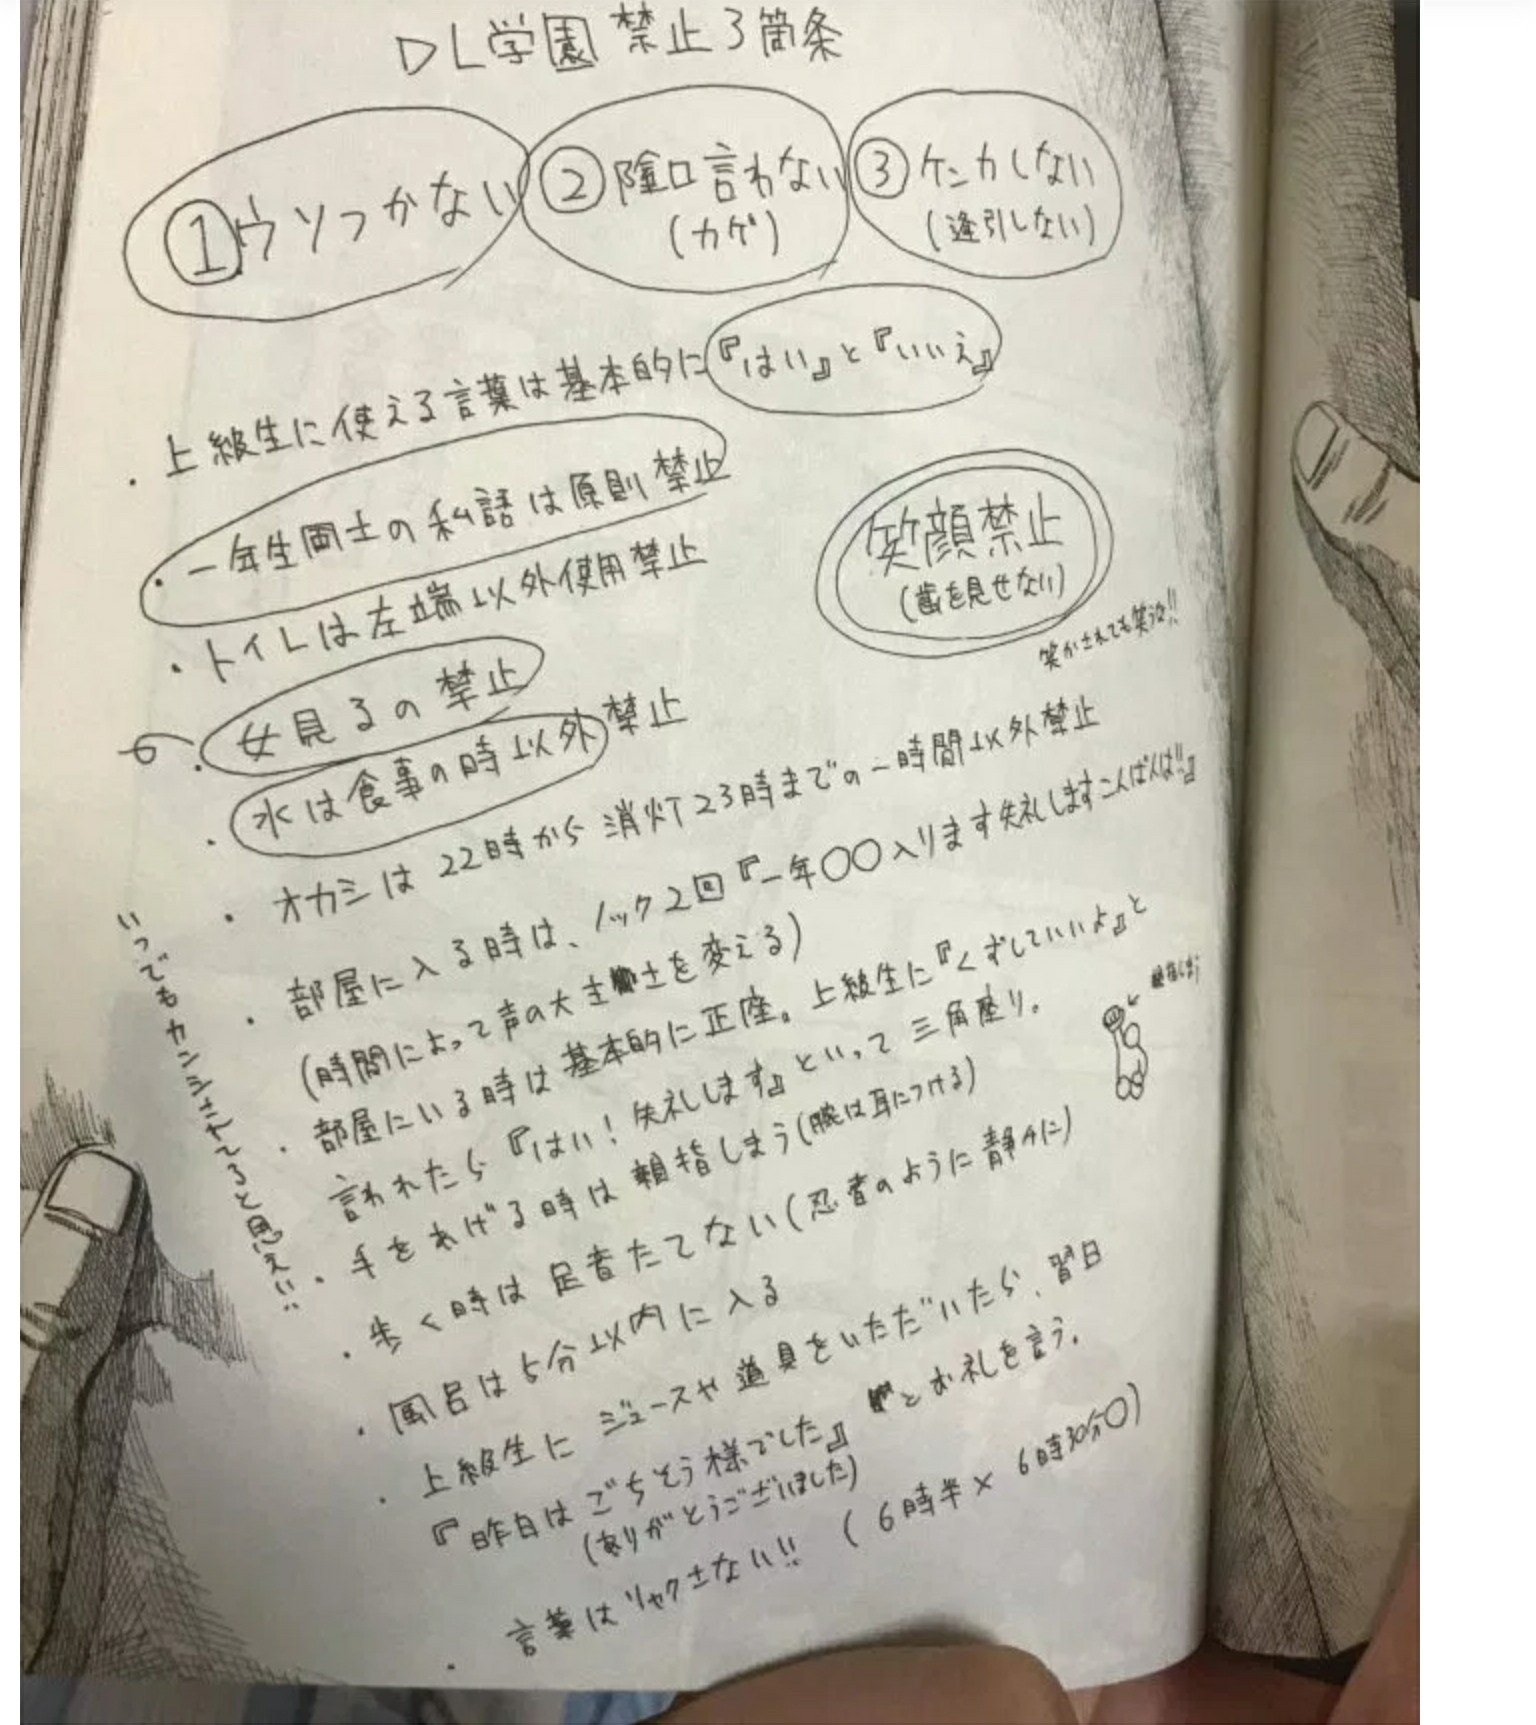 DL学園 禁止3箇条
①ウソつかない
②陰口言わない
(カゲ)
③ケンカしない
(逢引しない)
・上級生に使える言葉は基本的に『はい』と『いいえ』
・一年生同士の私語は原則禁止
・トイレは左端以外使用禁止
笑顔禁止
(歯を見せない)
笑かされても笑うな!!
・女見るの禁止
・水は食事の時以外禁止
・オカシは22時から消灯23時までの一時間以外禁止
・部屋に入る時は、ノック2回『一年〇〇入ります失礼しますこんばんは!!』
(時間によって声の大きさを変える)
・部屋にいる時は基本的に正座。上級生に『くずしていいよ』と
言われたら『はい!失礼します』といって三角座り。
・手をあげる時は親指しまう(腕は耳につける)
・歩く時は足音たてない(忍者のように静かに)
・風呂は5分以内に入る
・上級生にジュースや道具をいただいたら、翌日
『昨日はごちそう様でした』とお礼を言う。
(ありがとうございました)
・言葉はリャクさない!! (6時半× 6時30分〇)
いつでもカンシされてると思え!!